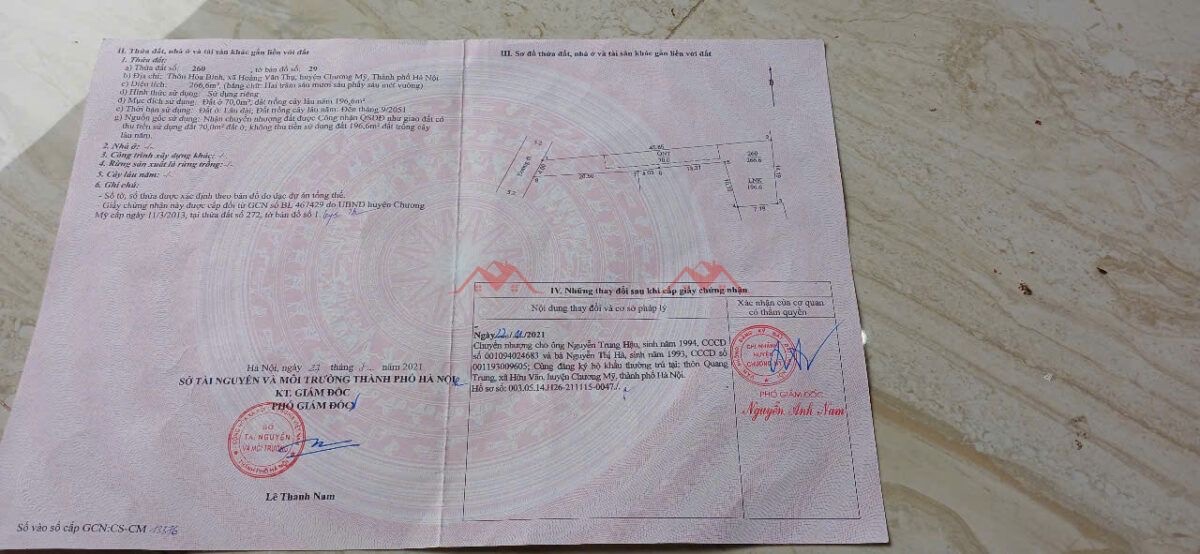 II. Thửa đất, nhà ở và tài sản khác gắn liền với đất
1. Thửa đất:
a) Thửa đất số: 260 , tờ bản đồ số: 29
b) Địa chỉ: Thôn Hòa Bình, xã Hoàng Văn Thụ, huyện Chương Mỹ, Thành phố Hà Nội
c) Diện tích: 266,6m², (bằng chữ: Hai trăm sáu mươi sáu phẩy sáu mét vuông)
d) Hình thức sử dụng: Sử dụng riêng
đ) Mục đích sử dụng: Đất ở 70,0m²; đất trồng cây lâu năm 196,6m²
e) Thời hạn sử dụng: Đất ở: Lâu dài; Đất trồng cây lâu năm: Đến tháng 9/2051
g) Nguồn gốc sử dụng: Nhận chuyển nhượng đất được Công nhận QSDĐ như giao đất có
thu tiền sử dụng đất 70,0m² đất ở; không thu tiền sử dụng đất 196,6m² đất trồng cây
lâu năm.
2. Nhà ở: -/-
3. Công trình xây dựng khác: -/-
4. Rừng sản xuất là rừng trồng: -/-
5. Cây lâu năm: -/-
6. Ghi chú:
- Số tờ, số thửa được xác định theo bản đồ đo đạc dự án tổng thể.
- Giấy chứng nhận này được cấp đổi từ GCN số BL 467429 do UBND huyện Chương
Mỹ cấp ngày 11/3/2013, tại thửa đất số 272, tờ bản đồ số 1
Hà Nội, ngày 23 tháng năm 2021
SỞ TÀI NGUYÊN VÀ MÔI TRƯỜNG THÀNH PHỐ HÀ NỘI
KT. GIÁM ĐỐC
PHÓ GIÁM ĐỐC
SỞ
TÀI NGUYÊN
VÀ MÔI TRƯỜNG
THÀNH PHỐ HÀ NỘI
Lê Thanh Nam
Số vào sổ cấp GCN:CS-CM
III. Sơ đồ thửa đất, nhà ở và tài sản khác gắn liền với đất
ONT
70.0
260
266.6
LNK
196.6
7.18
IV. Những thay đổi sau khi cấp giấy chứng nhận
Nội dung thay đổi và cơ sở pháp lý
Xác nhận của cơ quan
có thẩm quyền
Ngày /2021
Chuyển nhượng cho ông Nguyễn Trung Hậu, sinh năm 1994, CCCD
số 001094024683 và bà Nguyễn Thị Hà, sinh năm 1993, CCCD số
001193009605; Cùng đăng ký hộ khẩu thường trú tại: thôn Quang
Trung, xã Hữu Văn, huyện Chương Mỹ, thành phố Hà Nội.
Hồ sơ số: 003.05.14.H26-211115-0047./.
CHI NHÁNH
HUYỆN
CHƯƠNG MỸ
PHÓ GIÁM ĐỐC
Nguyễn Anh Nam